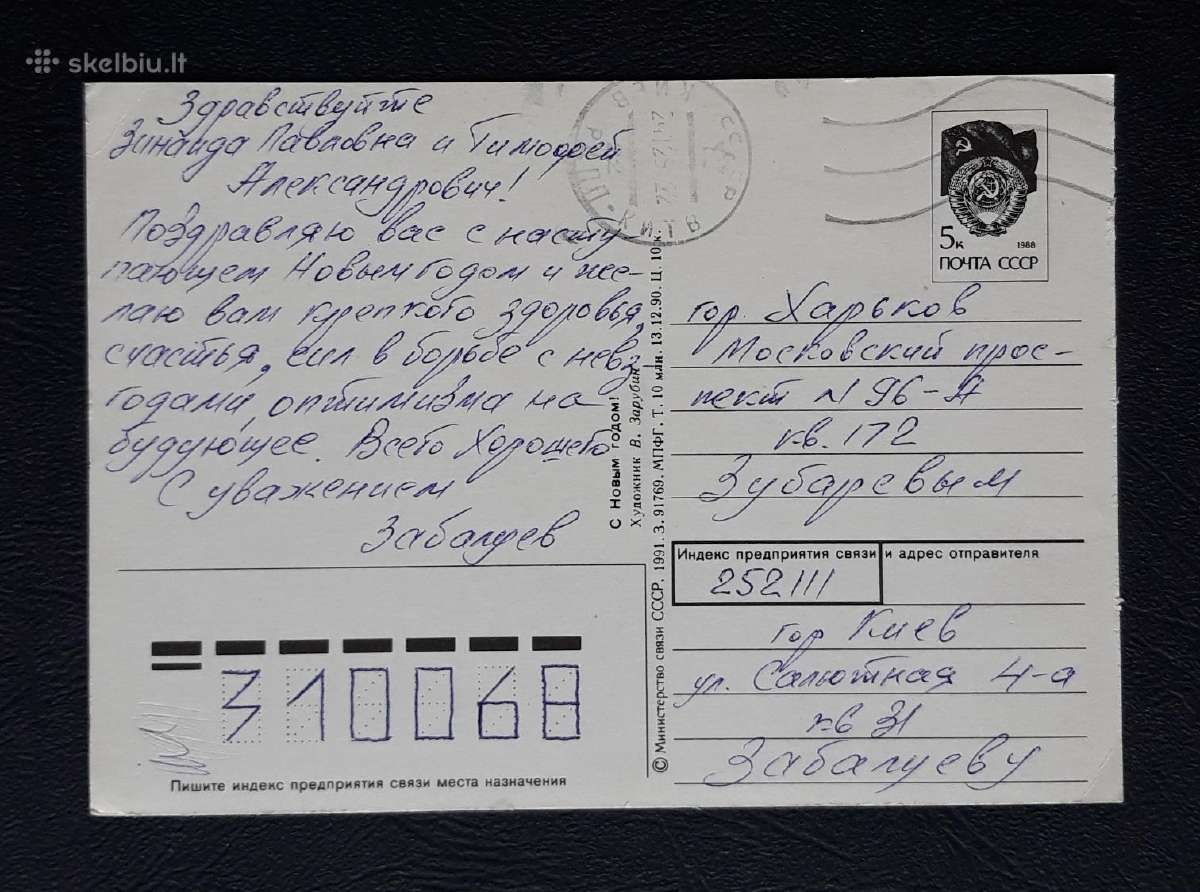 skelbiu.lt
Здравствуйте
Зинаида Павловна и Тимофей
Александрович!
Поздравляю вас с насту-
пающем Новым годом и же-
лаю вам крепкого здоровья,
счастья, сил в борьбе с невз-
годами, оптимизма на
будующее. Всего Хорошего
С уважением
Забалуев
КИЕВ
СССР
КИЇВ
5к
1988
ПОЧТА СССР
гор. Харьков
Московский прос-
пект N 96-А
кв. 172
Зубаревым
С Новым годом!
Художник В. Зарубин
© Министерство связи СССР, 1991. З. 91769. МПФГ. Т. 10 млн. 13.12.90. Ц. 10 к.
Индекс предприятия связи и адрес отправителя
252111
гор Киев
ул. Салютная 4-а
кв 31
Забалуеву
310068
Пишите индекс предприятия связи места назначения